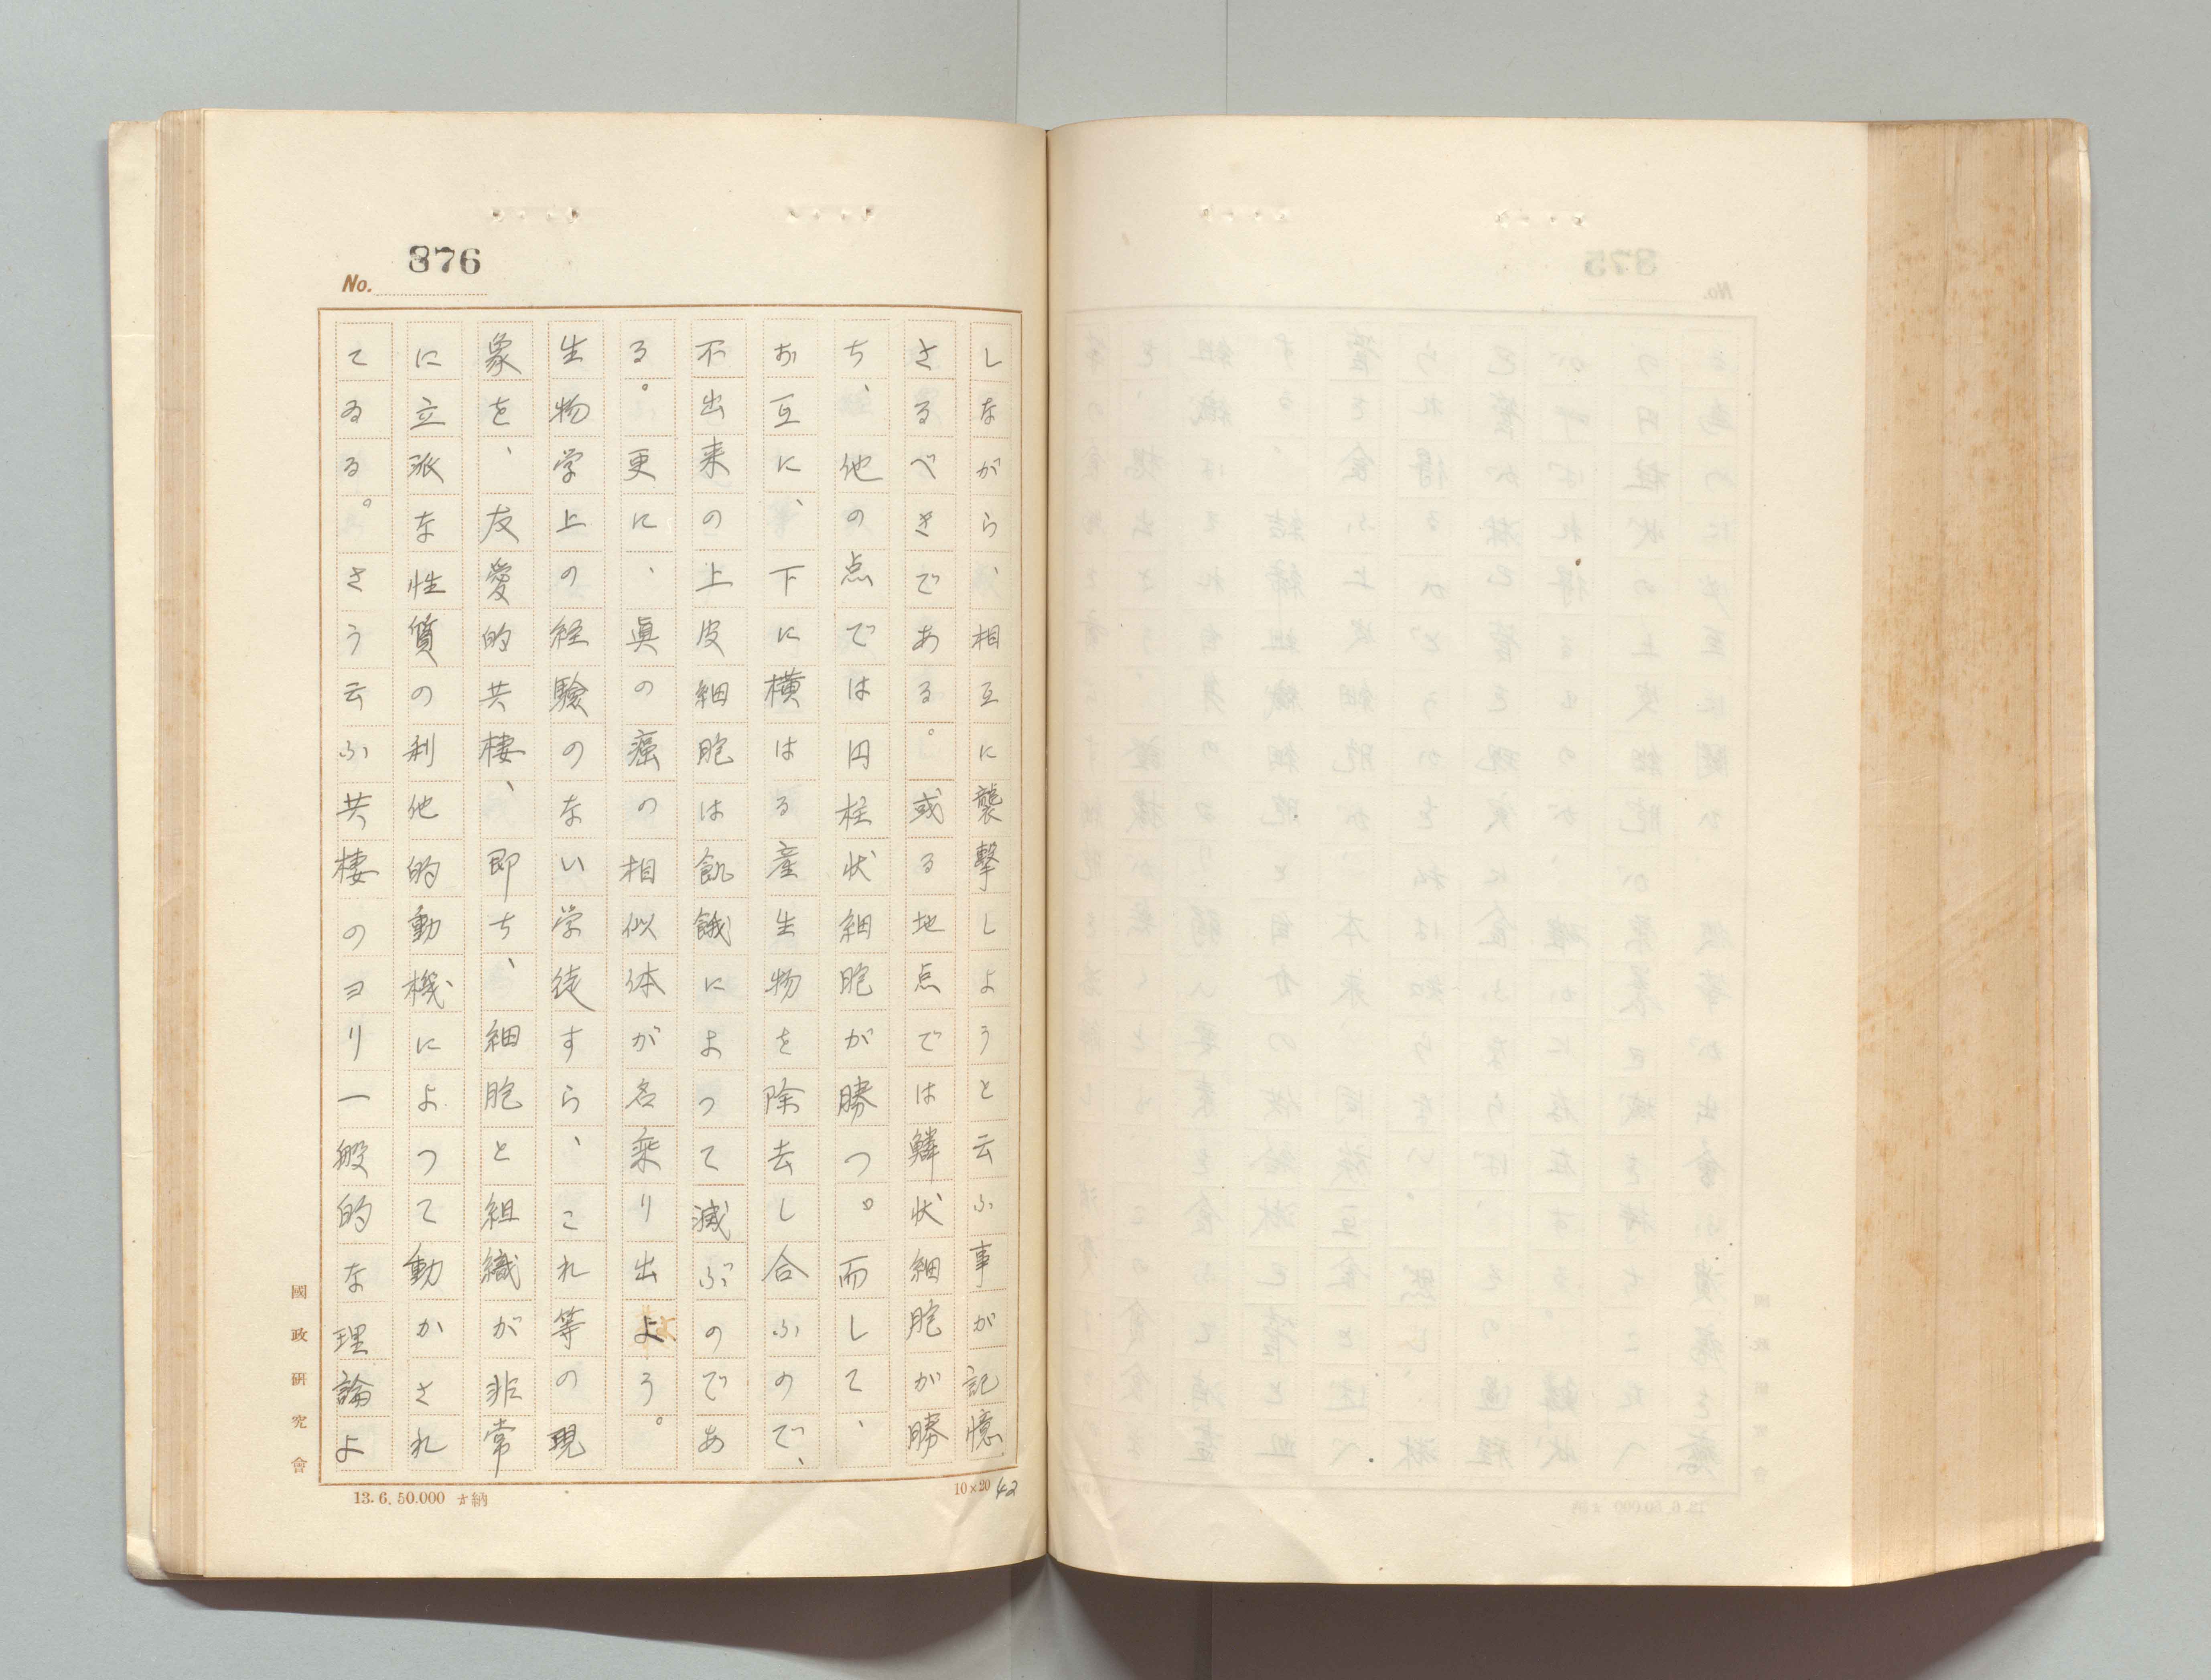 376
No.
しながら、相互に襲撃しようと云ふ事が記憶
さるべきである。或る地点では鱗状細胞が勝
ち、他の点では円柱状細胞が勝つ。而して、
お互に、下に横はる産生物を除去し合ふので、
不出来の上皮細胞は飢餓によつて滅ぶのであ
る。更に、眞の癌の相似体が名乗り出よう。
生物学上の経験のない学徒すら、これ等の現
象を、友愛的共棲、即ち、細胞と組織が非常
に立派な性質の利他的動機によつて動かされ
てゐる。さう云ふ共棲のヨリ一般的な理論よ
國政研究會
13.6.50.000 納
10×20
42